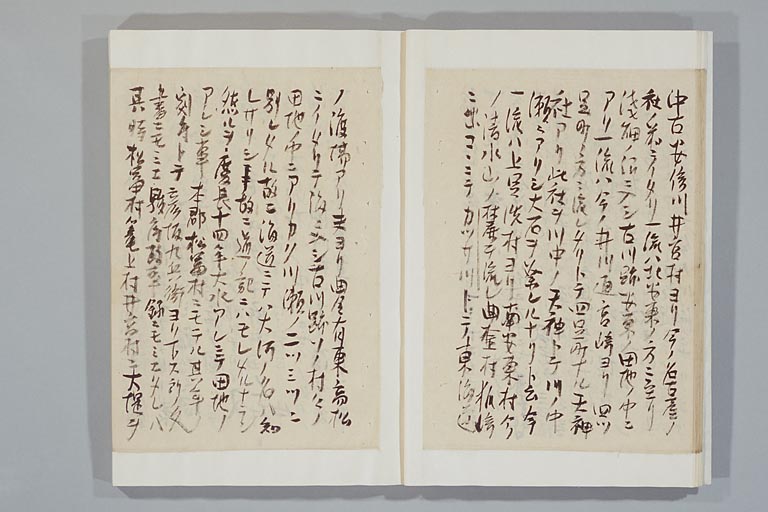 中古安倍川井宮村ヨリ今ノ名古屋ノ
社ノ前ニイタリ一流ハ北安東ノ方ニ至リ
浅畑ノ沼ニ入シ古川跡安東ノ田地ノ中ニ
アリ一流ハ今ノ井川通宮崎ヨリ四ツ
足町ノ方ニ流レタリトテ四足町ナル天神
社アリ此社ヲ川中ノ天神トテ川ノ中
瀬ニアリシ大石ヲ祭レルナリト云今
一流ハ上足洗村ヨリ南安東村今
ノ清水山ノ麓ヲ流レ曲金村狐崎
ニ出コヽニテカツサ川トテ東海道
ノ渡場アリ夫ヨリ曲金村東高松
ニイタリテ海ニ入シ古川跡ソノ村々ノ
田地ノ中ニアリカク川瀬ノ二ツ三ツニ
別レタル故ニ海道ニテハ大河ノ名ハ知
レサリシ事故ニ道ノ記ニハモレタルナラン
然ルヲ慶長十四年大水アレシテ田地ノ
アレシ事本郡松富村ニモテル其小年
寄与トテ彦坂九兵衛ヨリ下ス所ノ文
書ニモミエ駿府政事録ニモミエタレハ
其時松富村ノ亀上村井宮村ニ大堤ヲ